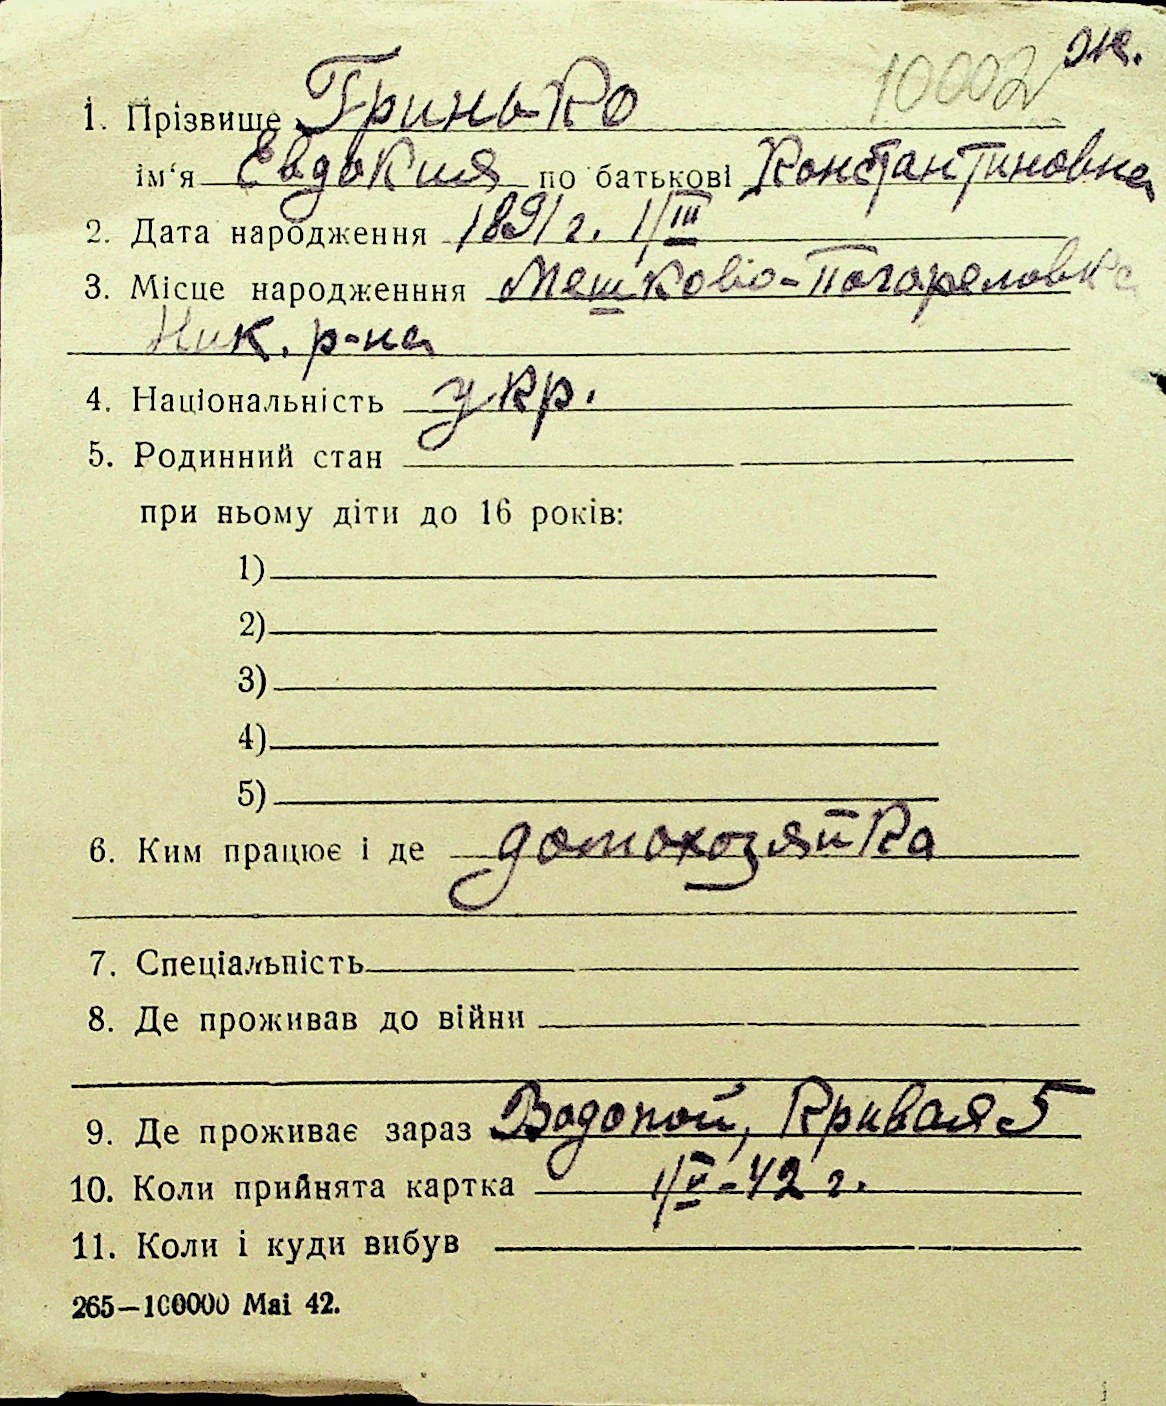 10002 ж.
1. Прізвище Гринько
ім'я Евдокия по батькові Константиновна
2. Дата народження 1891 г. 1/III
3. Місце народженння Мешково-Погореловка
Ник. р-на
4. Національність укр.
5. Родинний стан
при ньому діти до 16 років:
1)
2)
3)
4)
5)
6. Ким працює і де домохозяйка
7. Спеціальність
8. Де проживав до війни
9. Де проживає зараз Водопой, Кривая 5
10. Коли прийнята картка 1/V-42 г.
11. Коли і куди вибув
265—100000 Mai 42.